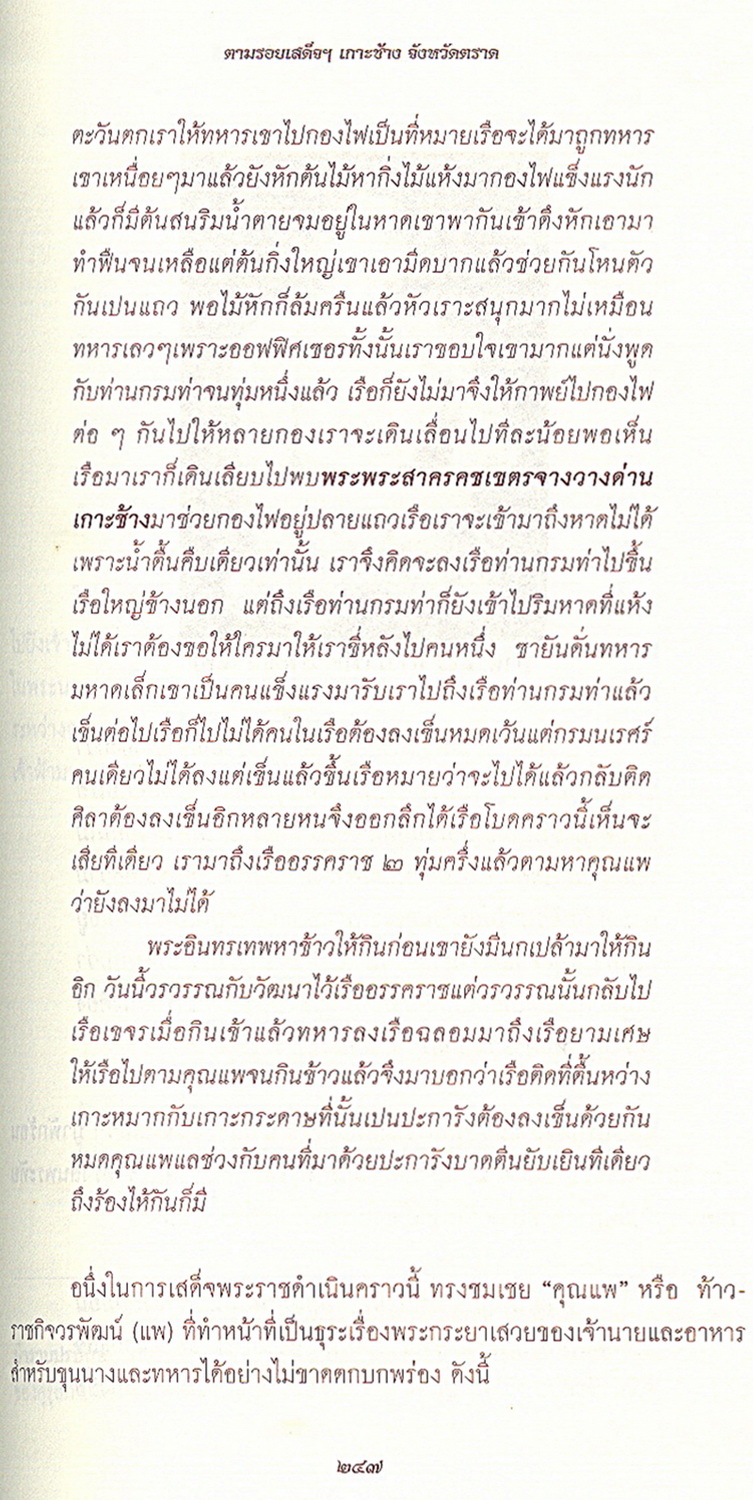 ตามรอยเสด็จฯ เกาะช้าง จังหวัดตราด
ตะวันตกเราให้ทหารเขาไปกองไฟเป็นที่หมายเรือจะได้มาถูกทหาร
เขาเหนื่อยๆมาแล้วยังหักต้นไม้หากิ่งไม้แห้งมากองไฟแข็งแรงนัก
แล้วก็มีต้นสนริมน้ำตายจมอยู่ในหาดเขาพากันเข้าดึงหักเอามา
ทำฟืนจนเหลือแต่ต้นกิ่งใหญ่เขาเอามีดบากแล้วช่วยกันโหนตัว
กันเปนแถว พอไม้หักก็ล้มครืนแล้วหัวเราะสนุกมากไม่เหมือน
ทหารเลวๆเพราะออฟฟิศเซอรทั้งนั้นเราขอบใจเขามากแต่นั่งพูด
กับท่านกรมท่าจนทุ่มหนึ่งแล้ว เรือก็ยังไม่มาจึงให้กาพย์ไปกองไฟ
ต่อ ๆ กันไปให้หลายกองเราจะเดินเลื่อนไปทีละน้อยพอเห็น
เรือมาเราก็เดินเลียบไปพบพระพระสาครคชเขตรจางวางด่าน
เกาะช้างมาช่วยกองไฟอยู่ปลายแถวเรือเราจะเข้ามาถึงหาดไม่ได้
เพราะน้ำตื้นคืบเดียวเท่านั้น เราจึงคิดจะลงเรือท่านกรมท่าไปขึ้น
เรือใหญ่ข้างนอก แต่ถึงเรือท่านกรมท่าก็ยังเข้าไปริมหาดที่แห้ง
ไม่ได้เราต้องขอให้ใครมาให้เราขี่หลังไปคนหนึ่ง ชายันต์นทหาร
มหาดเล็กเขาเป็นคนแข็งแรงมารับเราไปถึงเรือท่านกรมท่าแล้ว
เข็นต่อไปเรือก็ไปไม่ได้คนในเรือต้องลงเข็นหมดเว้นแต่กรมนเรศร์
คนเดียวไม่ได้ลงแต่เข็นแล้วขึ้นเรือหมายว่าจะไปได้แล้วกลับติด
ศิลาต้องลงเข็นอิกหลายหนจึงออกลึกได้เรือโบตคราวนี้เห็นจะ
เสียทีเดียว เรามาถึงเรืออรรคราช ๒ ทุ่มครึ่งแล้วตามหาคุณแพ
ว่ายังลงมาไม่ได้
พระอินทรเทพหาข้าวให้กินก่อนเขายังมีนกเปล้ามาให้กิน
อิก วันนี้วรวรรณกับวัฒนาไว้เรืออรรคราชแต่วรวรรณนั้นกลับไป
เรือเขจรเมื่อกินเข้าแล้วทหารลงเรือฉลอมมาถึงเรือยามเศษ
ให้เรือไปตามคุณแพจนกินข้าวแล้วจึงมาบอกว่าเรือติดที่ตื้นหว่าง
เกาะหมากกับเกาะกระดาษที่นั้นเปนปะการังต้องลงเข็นด้วยกัน
หมดคุณแพแลช่วงกับคนที่มาด้วยปะการังบาดตีนยับเยินทีเดียว
ถึงร้องไห้กันก็มี
อนึ่งในการเสด็จพระราชดำเนินคราวนี้ ทรงชมเชย “คุณแพ” หรือ ท้าว-
ราชกิจวรพัฒน์ (แพ) ที่ทำหน้าที่เป็นธุระเรื่องพระกระยาเสวยของเจ้านายและอาหาร
สำหรับขุนนางและทหารได้อย่างไม่ขาดตกบกพร่อง ดังนี้
๒๔๗